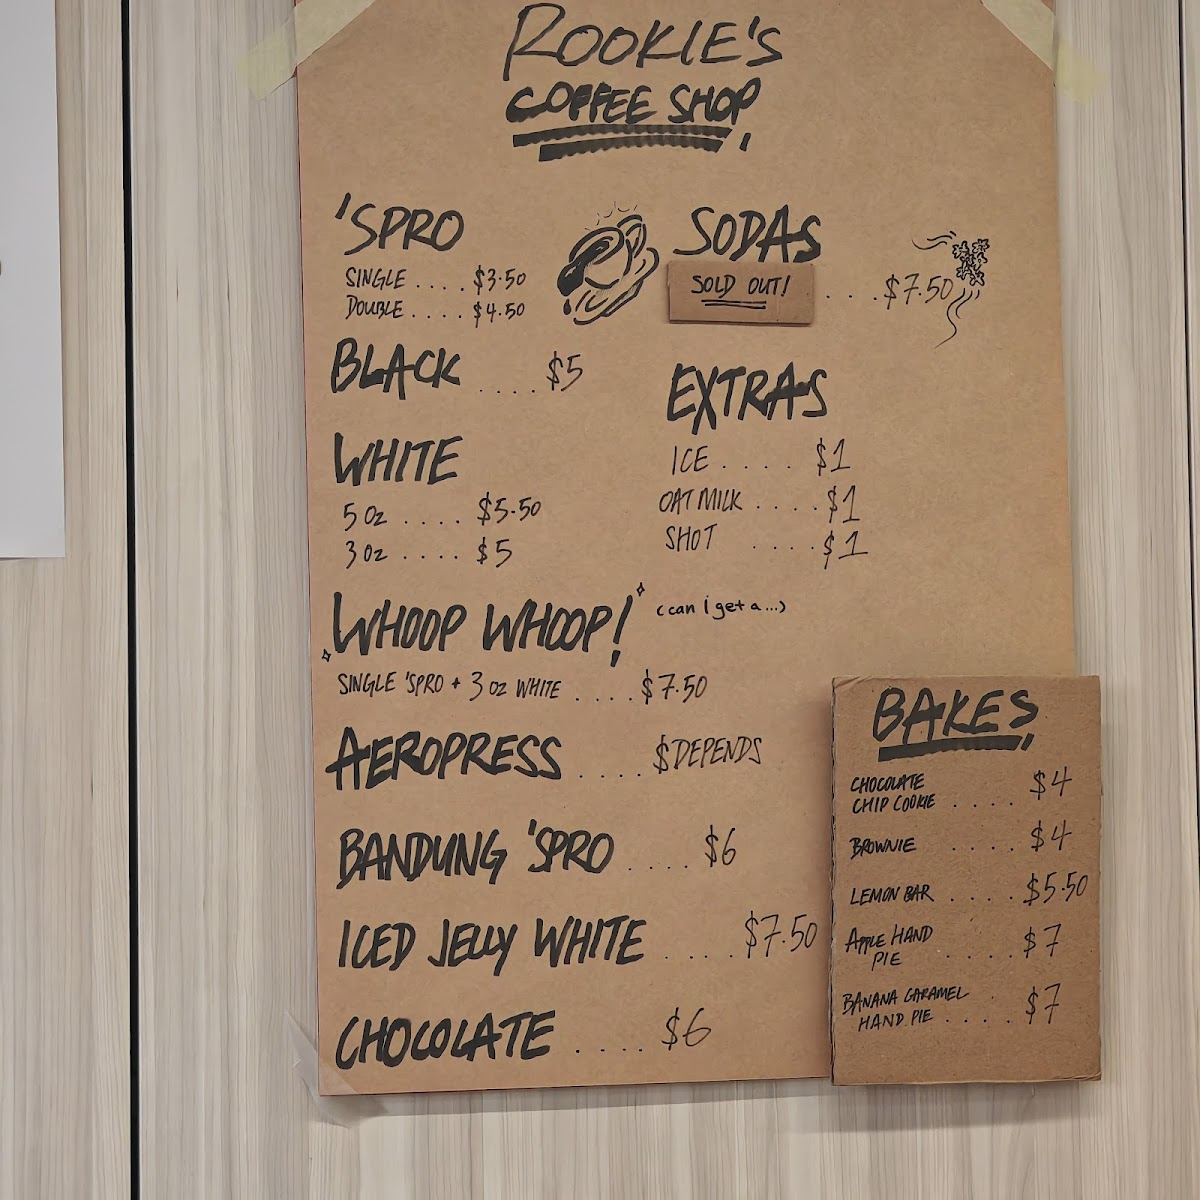 ROOKIE'S
COFFEE SHOP!
'SPRO
SINGLE .... $3.50
DOUBLE .... $4.50
BLACK .... $5
WHITE
5 oz .... $5.50
3 oz .... $5
WHOOP WHOOP! (can i get a...)
SINGLE 'SPRO + 3 oz WHITE .... $7.50
AEROPRESS .... $DEPENDS
BANDUNG 'SPRO .... $6
ICED JELLY WHITE .... $7.50
CHOCOLATE .... $6
SODAS
SOLD OUT! ... $7.50
EXTRAS
ICE .... $1
OAT MILK .... $1
SHOT .... $1
BAKES
CHOCOLATE
CHIP COOKIE .... $4
BROWNIE .... $4
LEMON BAR .... $5.50
APPLE HAND
PIE .... $7
BANANA CARAMEL
HAND PIE .... $7